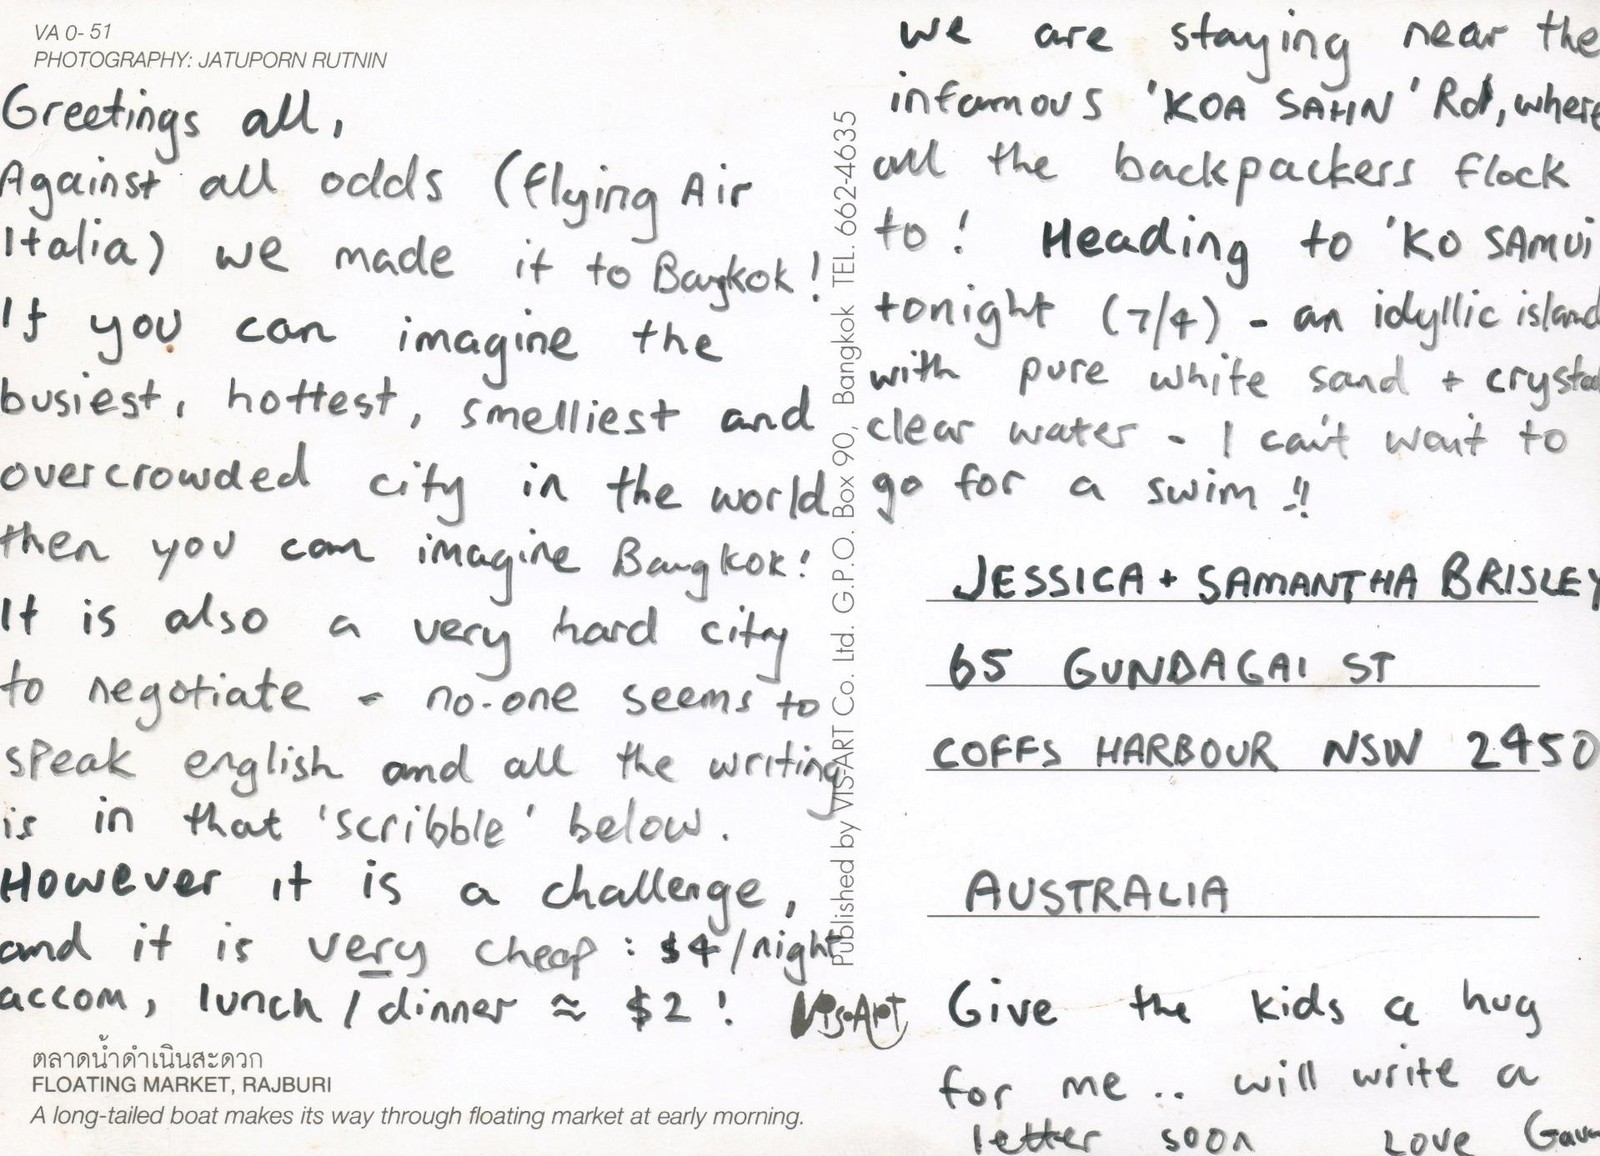 VA 0- 51
PHOTOGRAPHY: JATUPORN RUTNIN
Greetings all,
Against all odds (flying Air
Italia) we made it to Bangkok!
If you can imagine the
busiest, hottest, smelliest and
overcrowded city in the world
then you can imagine Bangkok!
It is also a very hard city
to negotiate - no-one seems to
speak english and all the writing
is in that 'scribble' below.
However it is a challenge,
and it is very cheap : $4/night
accom, lunch / dinner ≈ $2 !
ตลาดน้ำดำเนินสะดวก
FLOATING MARKET, RAJBURI
A long-tailed boat makes its way through floating market at early morning.
Published by VIS-ART Co. Ltd. G.P.O. Box 90, Bangkok TEL. 662-4635
Vis•Art
we are staying near the
infamous 'KOA SAHN' Rd, where
all the backpackers flock
to! Heading to 'KO SAMUi
tonight (7/4) - an idyllic island
with pure white sand + crystal
clear water - I can't wait to
go for a swim !!
JESSICA + SAMANTHA BRISLEY
65 GUNDAGAI ST
COFFS HARBOUR NSW 2450
AUSTRALIA
Give the kids a hug
for me .. will write a
letter soon Love